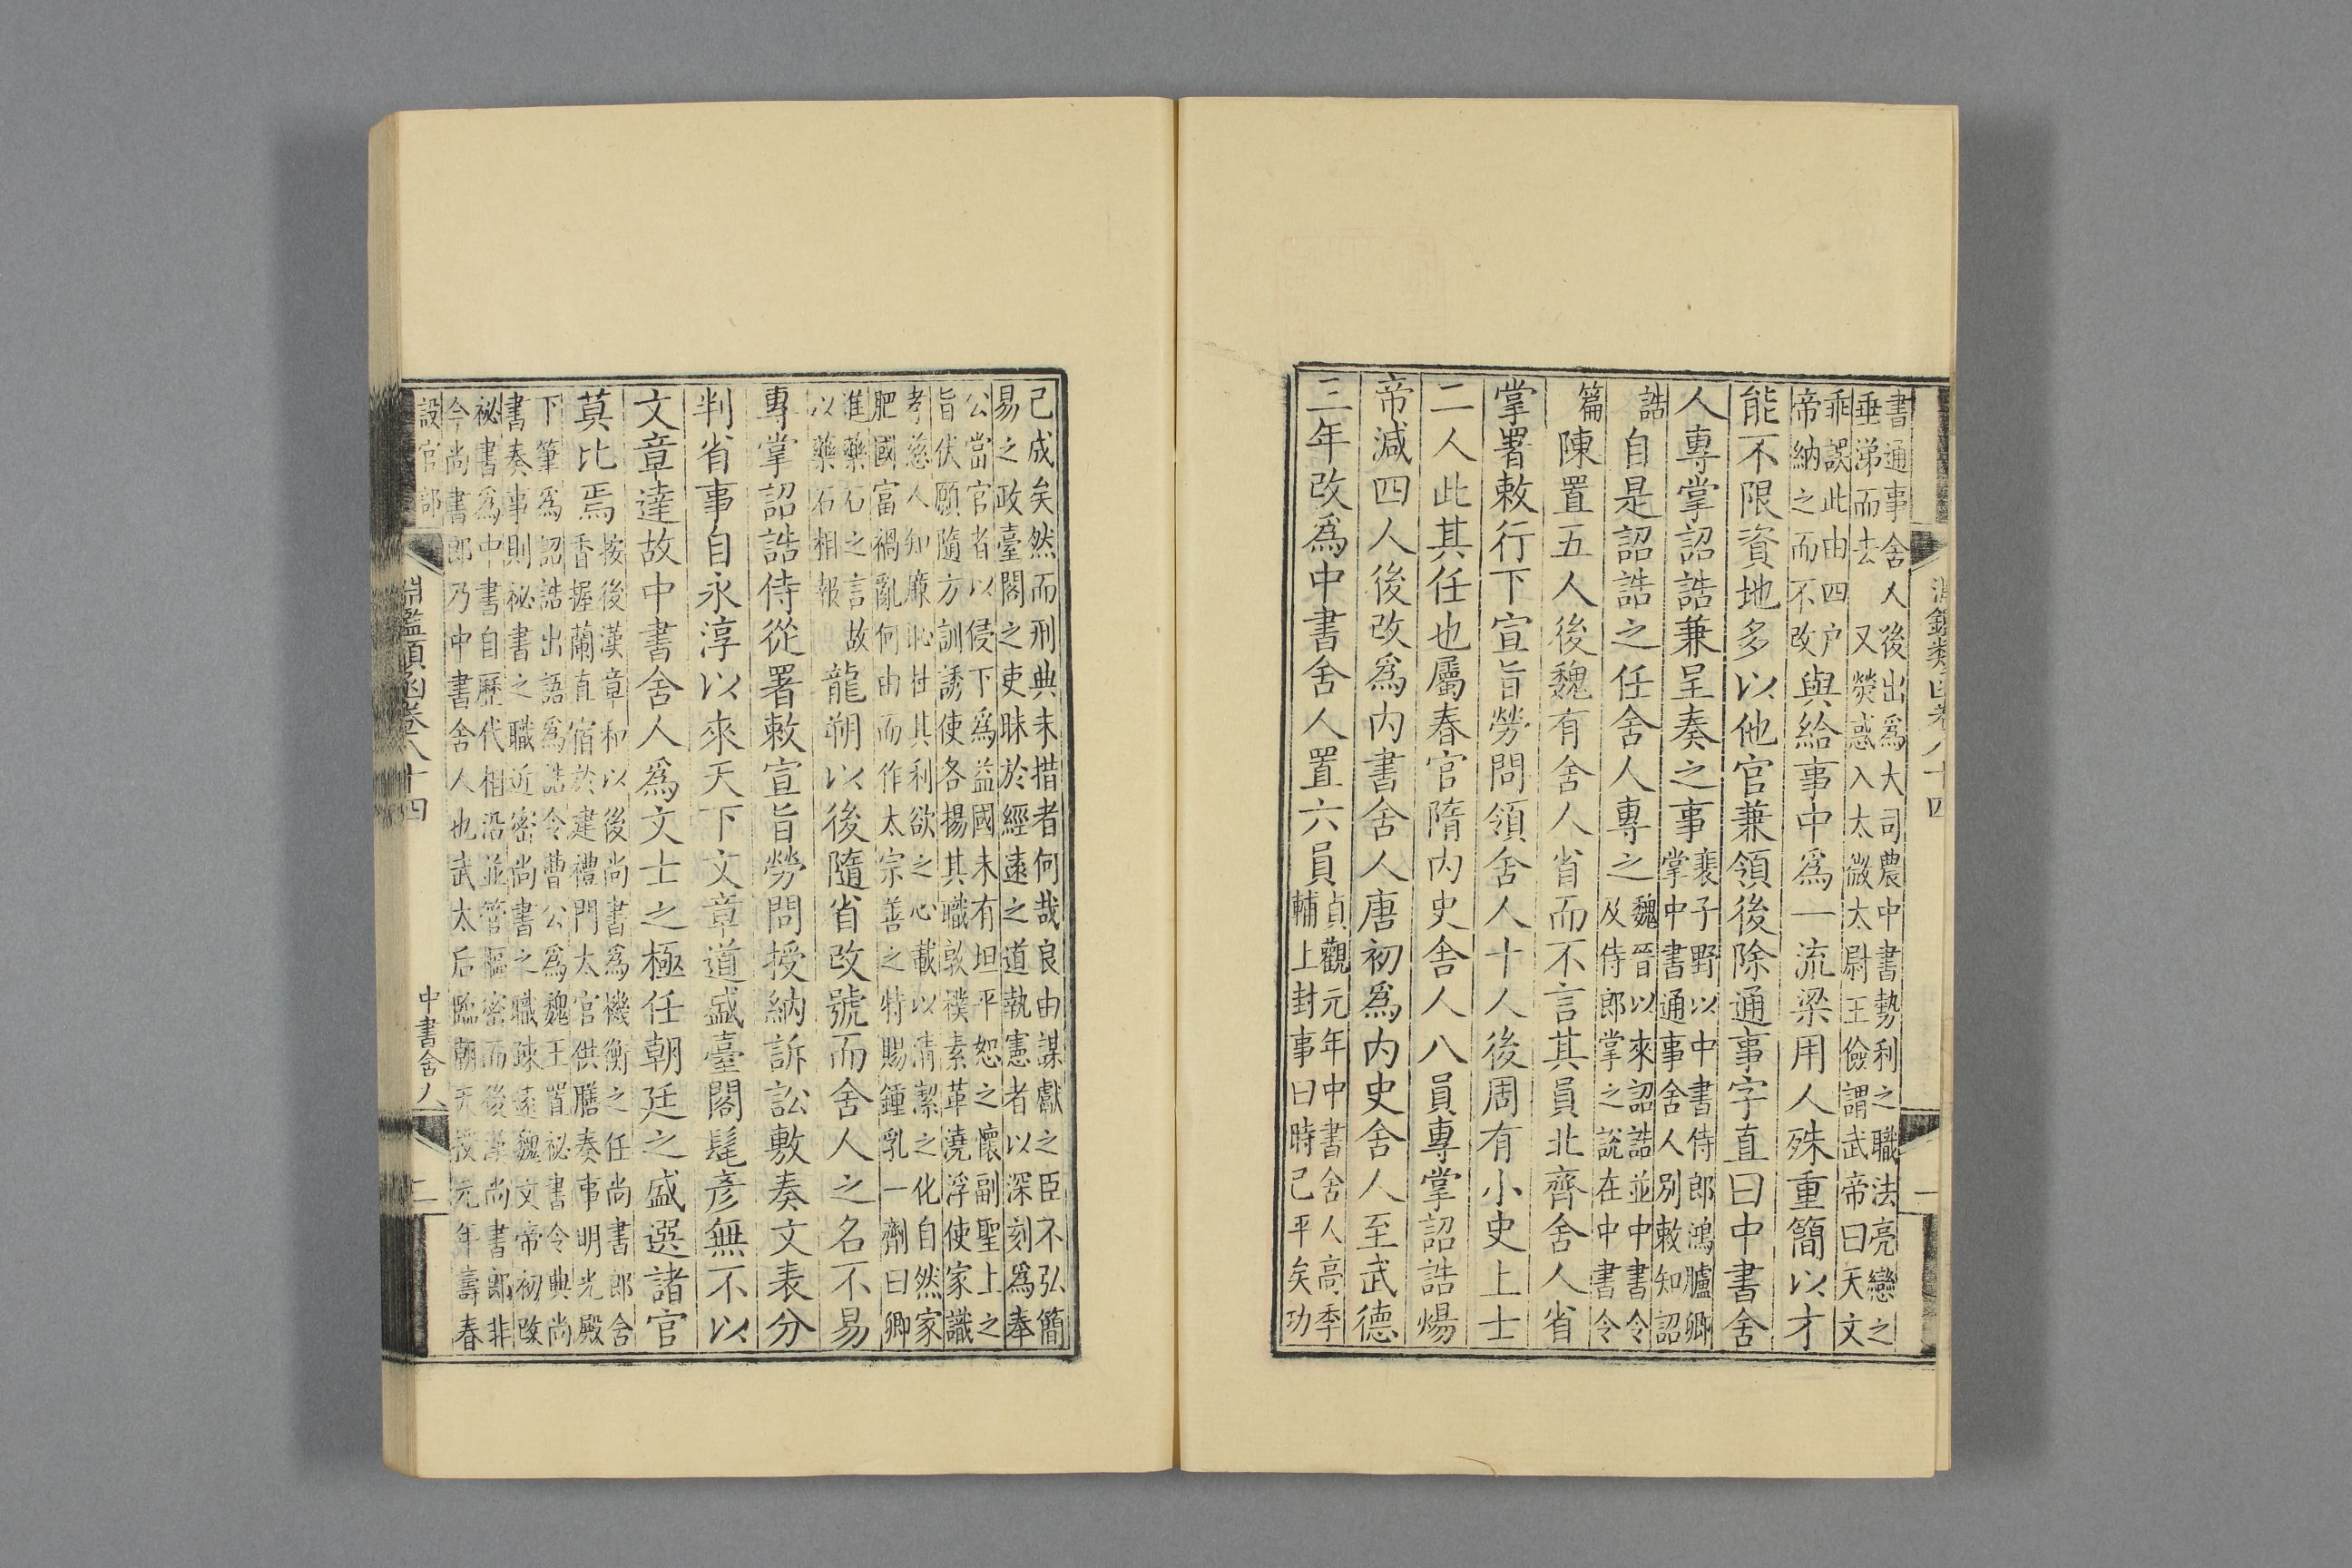 淵鑑類函卷八十四
一
書通事舍人後出爲大司農中書勢利之職法亮戀之
垂涕而去　又熒惑入太微太尉王儉謂武帝曰天文
乖誤此由四户
帝納之而不改
與給事中爲一流梁用人殊重簡以才
能不限資地多以他官兼領後除通事字直曰中書舍
人專掌詔誥兼呈奏之事
裴子野以中書侍郎鴻臚卿
掌中書通事舍人別敕知詔
誥
自是詔誥之任舍人專之
魏晉以來詔誥並中書令
及侍郎掌之說在中書令
篇
陳置五人後魏有舍人省而不言其員北齊舍人省
掌署敕行下宣旨勞問領舍人十人後周有小史上士
二人此其任也屬春官隋內史舍人八員專掌詔誥煬
帝減四人後改爲內書舍人唐初爲內史舍人至武德
三年改爲中書舍人置六員
貞觀元年中書舍人高季
輔上封事曰時已平矣功
已成矣然而刑典未措者何哉良由謀獻之臣不弘簡
易之政臺閣之吏昧於經遠之道執憲者以深刻爲奉
公當官者以侵下爲益國未有坦平恕之懷副聖上之
旨伏願隨方訓誘使各揚其職敦樸素革澆浮使家識
孝慈人知廉恥杜其利欲之心載以清潔之化自然家
肥國富禍亂何由而作太宗善之特賜鍾乳一劑曰卿
進藥石之言故
以藥石相報
龍朔以後隨省改號而舍人之名不易
專掌詔誥侍從署敕宣旨勞問授納訴訟敷奏文表分
判省事自永淳以來天下文章道盛臺閣髦彥無不以
文章達故中書舍人爲文士之極任朝廷之盛選諸官
莫比焉
按後漢章和以後尚書爲機衡之任尚書郎含
香握蘭直宿於建禮門太官供膳奏事明光殿
下筆爲詔誥出語爲誥令曹公爲魏王置祕書令典尚
書奏事則祕書之職近密尚書之職疎遠魏文帝初改
祕書爲中書自歷代相沿並管樞密而後漢尚書郎非
今尚書郎乃中書舍人也武太后臨朝天授元年壽春
設官部
淵鑑類函卷八十四
中書舍人
二